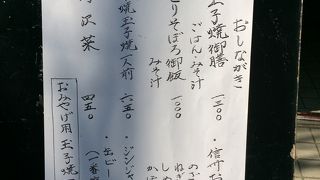 おしながき
玉子焼御膳 一三〇〇
ごはん みそ汁
とりそぼろ御飯 一〇〇〇
みそ汁
玉子焼一人前 六五〇
野沢菜 四五〇
おみやげ用玉子焼
・信州
・ジンジャ
・缶ビー
(一番